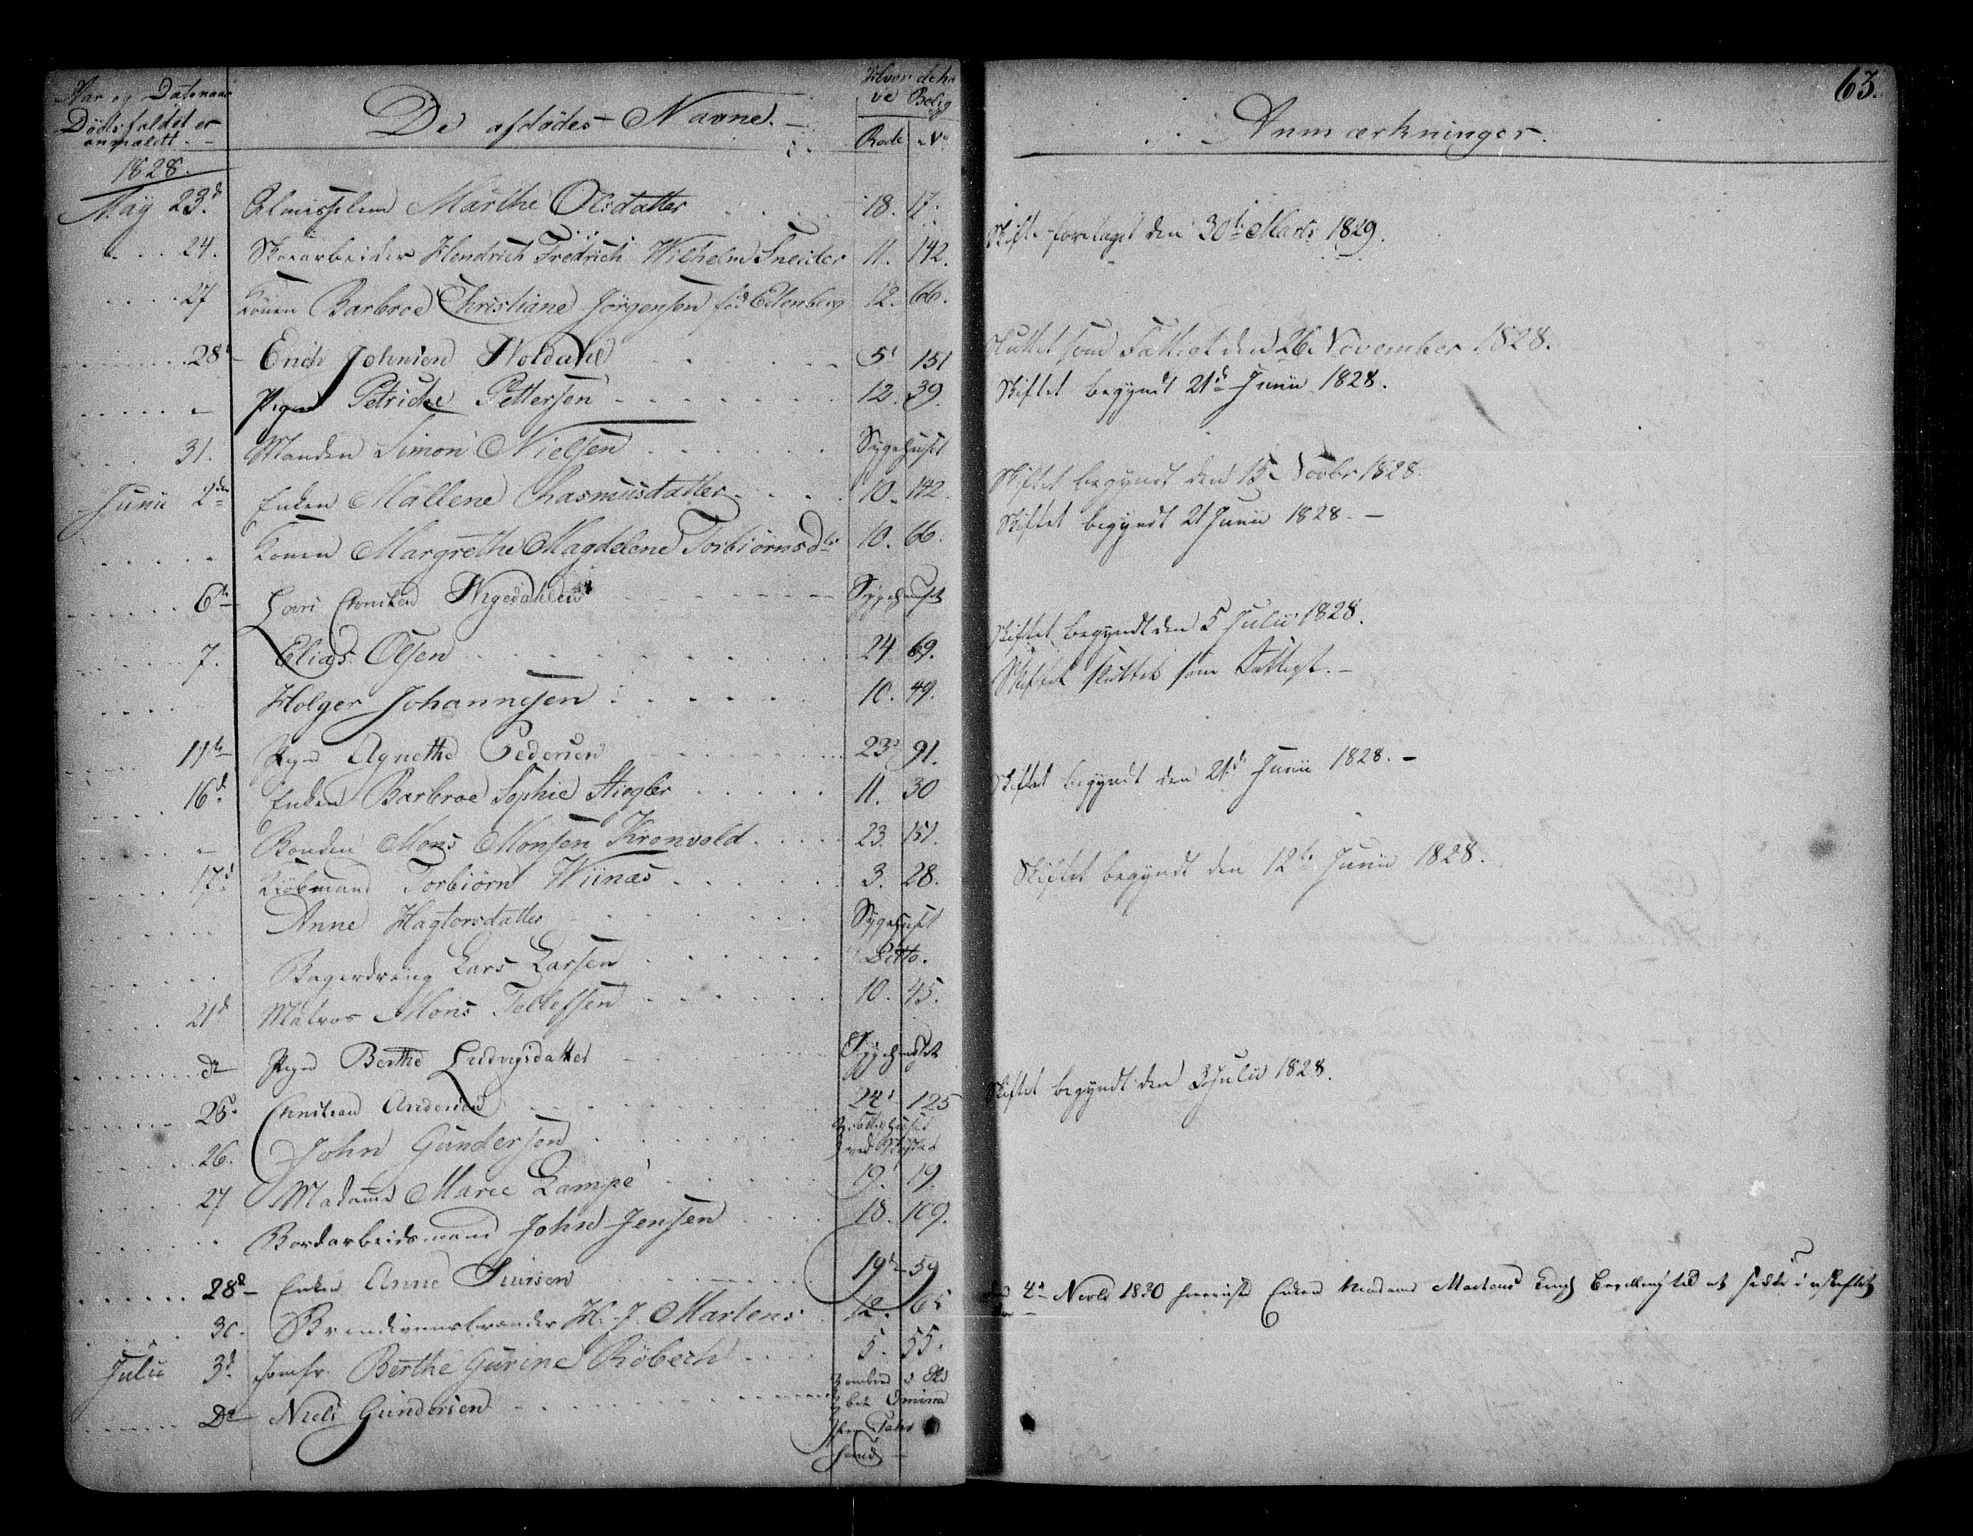 Aar og Datonaar
Dödsfaldet er
anmældt.
De afdödes Navne.
Hvor de ha
ve Bolig
Rode No
Anmærkninger.
63.
1828.
May 23d Almisselem Marthe Olsdatter 18. 17.
24. Skoearbeider Hendrich Fredrich Wilhelm Sneider 11. 142. Skifte foretaget den 30te Marts 1829.
27 Konen Barbroe Christiane Jörgensen föd Edenberg 12. 66.
28 Erich Johnsen Holdahl 5 151 sluttet som Fattigt den 26 November 1828.
Pigen Petricke Pettersen 12. 39. Skiftet begyndt 21d Junii 1828.
31. Manden Simon Nielsen Sygehuset
Junii 2den Enken Mallene Rasmusdatter 10. 142. Skiftet begyndt den 15 Novbr 1828.
Konen Margrethe Magdelene Torbiörnsdr 10. 66. Skiftet begyndt 21 Junii 1828.
6te Wigedahlen Sygehuset
7. Elias Olsen 24 69. Skiftet begyndt den 5 Julii 1828.
Holger Johannesen 10. 49. Skiftet sluttet som Fattigt.
Pigen Agnethe Pedersen 23 91.
16d Enken Barbroe Sophie Stiegler 11. 30 Skiftet begyndt den 21d Junii 1828.
Bonden Mons Monsen Kronvold 23. 151.
17d Kiöbmand Torbiörn Wiinæs 3. 28. Skiftet begyndt den 12te Junii 1828.
Anne Hagtorsdatter Sygehuset
Bagerdreng Lars Larsen Ditto.
21d Matros Mons Tollefsen 10. 45.
do Pigen Berthe Ludvigsdatter Sygehuset
25 Christian Andersen 24 125 Skiftet begyndt den 3 Julii 1828.
26. John Gundersen Fattighuset
ved
27 Madame Marie Lampe 19. 19.
Bordarbeidsmand John Jensen 18. 109.
28d Enken Anne Iversen 19 59
30. Brendivinsbrænder H. J. Martens 12. 65 4de 1830 Enken Madame Martens at sidde i uskiftet
Julii 3d Jomfr. Berthe Gurine Röbech 5. 55.
Do Niels Gundersen